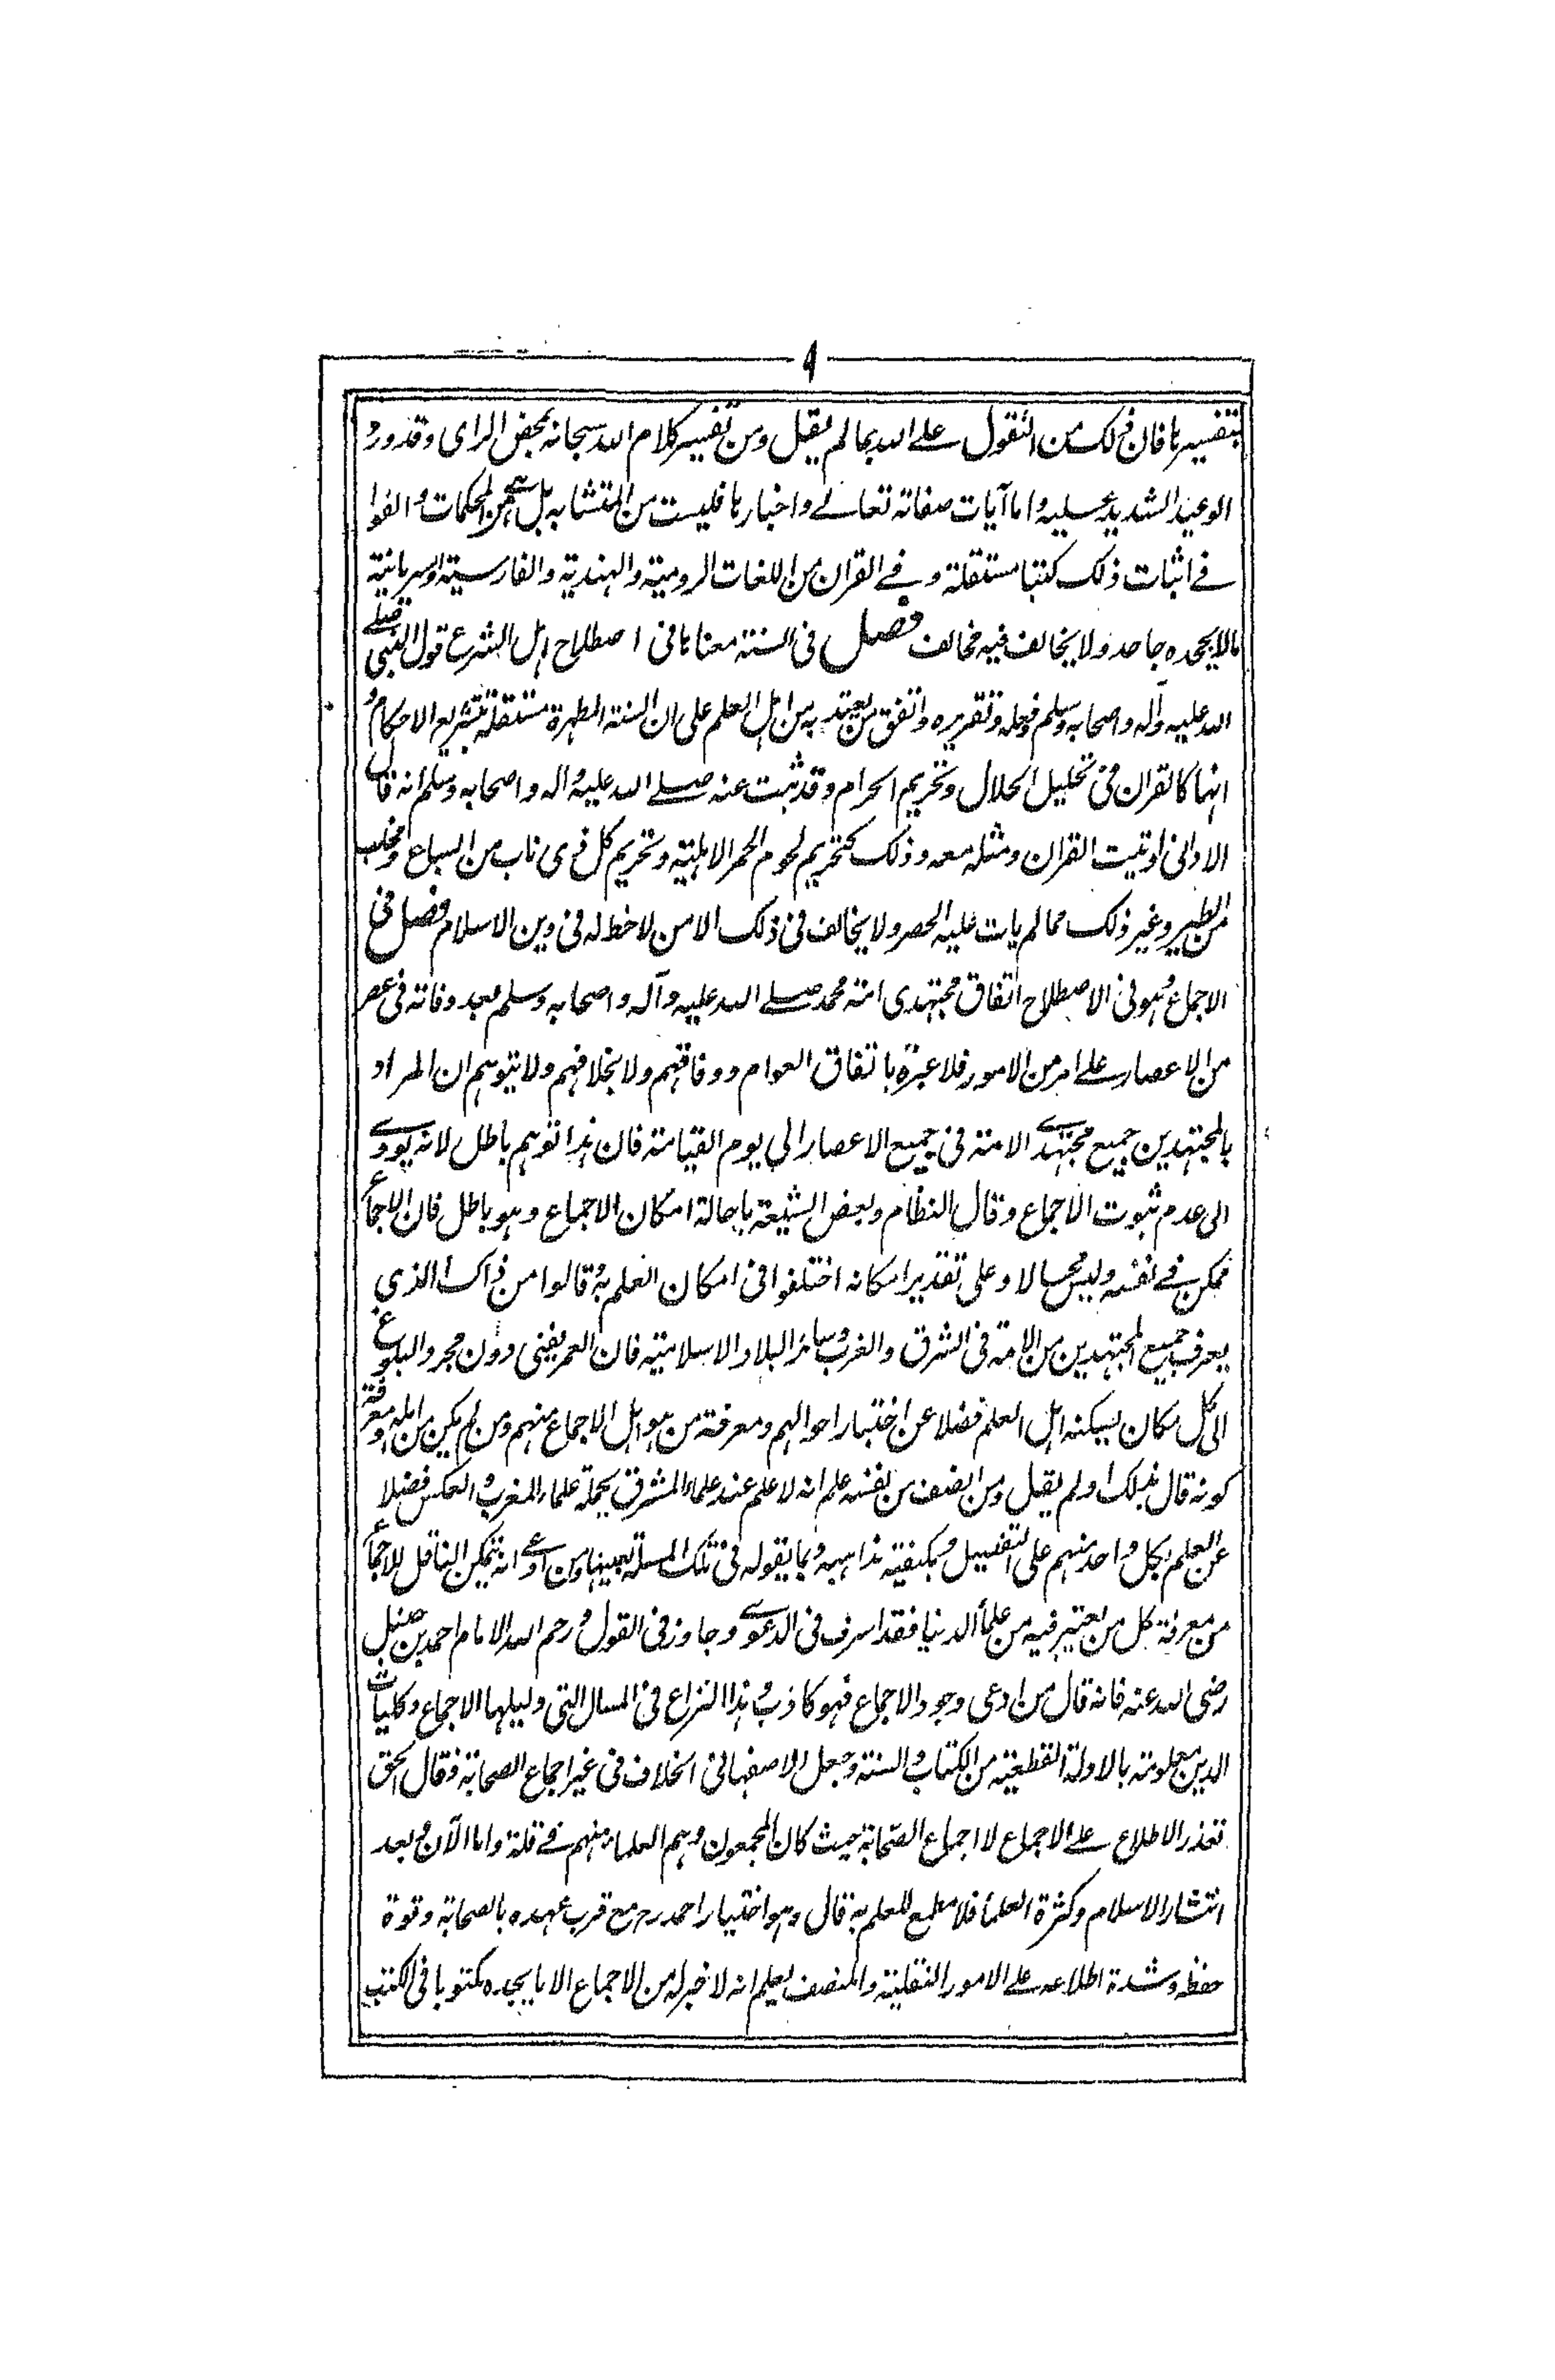 ٩
بتفسيرها فان ذلك من التقول على الله بما لم يقل ومن تفسير كلام الله سبحانه بمحض الراى وقد ورد
الوعيد الشديد عليه واما آيات صفاته تعالى واخبارها فليست من المتشابه بل هى من المحكمات والفوا
فى اثبات ذلك كتبا مستقلة وفى القران من اللغات الرومية والهندية والفارسية والسريانية
مالا يجحده جاحد ولا يخالف فيه مخالف فصل فى السنة معناها فى اصطلاح اهل الشرع قول النبى صلى
الله عليه وآله واصحابه وسلم وفعله وتقريره واتفق من يعتد به من اهل العلم على ان السنة المطهرة مستقلة بتشريع الاحكام و
انها كالقران فى تحليل الحلال وتحريم الحرام وقد ثبت عنه صلى الله عليه واله واصحابه وسلم انه قال
الا وانى اوتيت القران ومثله معه وذلك كتحريم لحوم الحمر الاهلية وتحريم كل ذى ناب من السباع ومخلب
من الطير وغير ذلك مما لم يات عليه الحصر ولا يخالف فى ذلك الا من لا حظ له فى دين الاسلام فصل فى
الاجماع وهو فى الاصطلاح اتفاق مجتهدى امة محمد صلى الله عليه وآله واصحابه وسلم بعد وفاته فى عصر
من الاعصار على امر من الامور فلا عبرة باتفاق العوام ووفاقهم ولا بخلافهم ولا يتوهم ان المراد
بالمجتهدين جميع مجتهدى الامة فى جميع الاعصار الى يوم القيامة فان هذا توهم باطل لانه يودى
الى عدم ثبوت الاجماع وقال النظام وبعض الشيعة باحالة امكان الاجماع وهو باطل فان الاجماع
ممكن فى نفسه وليس محالا وعلى تقدير امكانه اختلفوا فى امكان العلم به وقالوا من ذاك الذى
يعرف جميع المجتهدين من الامة فى الشرق والغرب وسائر البلاد الاسلامية فان العمر يفنى دون مجرد البلوغ
الى كل مكان يسكنه اهل العلم فضلا عن اختبار احوالهم ومعرفة من هو اهل الاجماع منهم ومن لم يكن من اهله ومعرفة
كونه قال بذلك او لم يقل ومن انصف من نفسه علم انه لا علم عند علماء المشرق بجملة علماء المغرب والعكس فضلا
عن العلم بكل واحد منهم على التفصيل وبكيفية مذاهبه وبما يقوله فى تلك المسئلة بعينها ومن ادعى انه يتمكن الناقل للاجماع
من معرفة كل من يعتبر فيه من علمأ الدنيا فقد اسرف فى الدعوى وجاوز فى القول ورحم الله الامام احمد بن حنبل
رضى الله عنه فانه قال من ادعى وجود الاجماع فهو كاذب وهذا النزاع فى المسائل التى دليلها الاجماع وكليات
الدين معلومة بالادلة القطعية من الكتاب والسنة وجعل الاصفهانى الخلاف فى غير اجماع الصحابة وقال الحق
تعذر الاطلاع على الاجماع لا اجماع الصحابة حيث كان المجمعون وهم العلماء منهم فى قلة واما الآن وبعد
انتشار الاسلام وكثرة العلمأ فلا مطمع للعلم به قال وهو اختيار احمد رح مع قرب عهده بالصحابة وقوة
حفظه وشدة اطلاعه على الامور النقلية والمنصف يعلم انه لا خبر له من الاجماع الا ما يجده مكتوبا فى الكتب